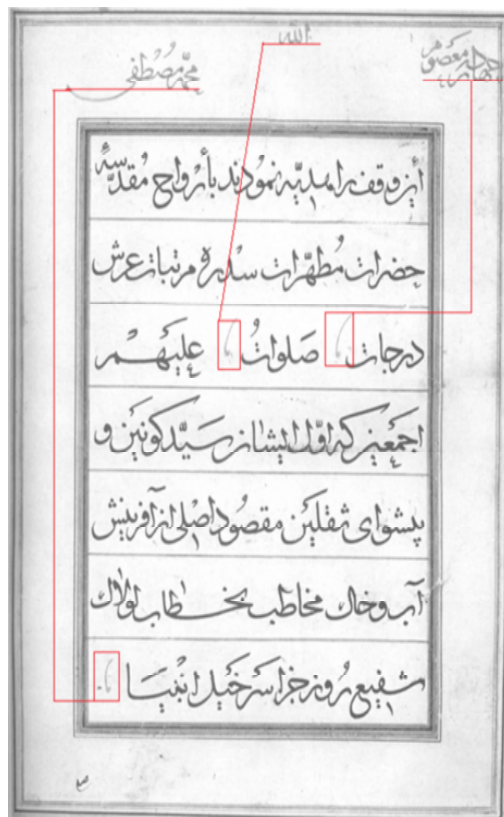 چهارده معصوم
الله
محمد مصطفی
این وقف را هدیه نمودند بأرواح مقدسه
حضرات مطهرات سدره مرتبات عرش
درجات صلوات علیهم
اجمعین که اول ایشان سید کونین و
پیشوای ثقلین مقصود اصلی از آفرینش
آب و خاک مخاطب بخطاب لولاک
شفیع روز جزا سر خیل انبیا